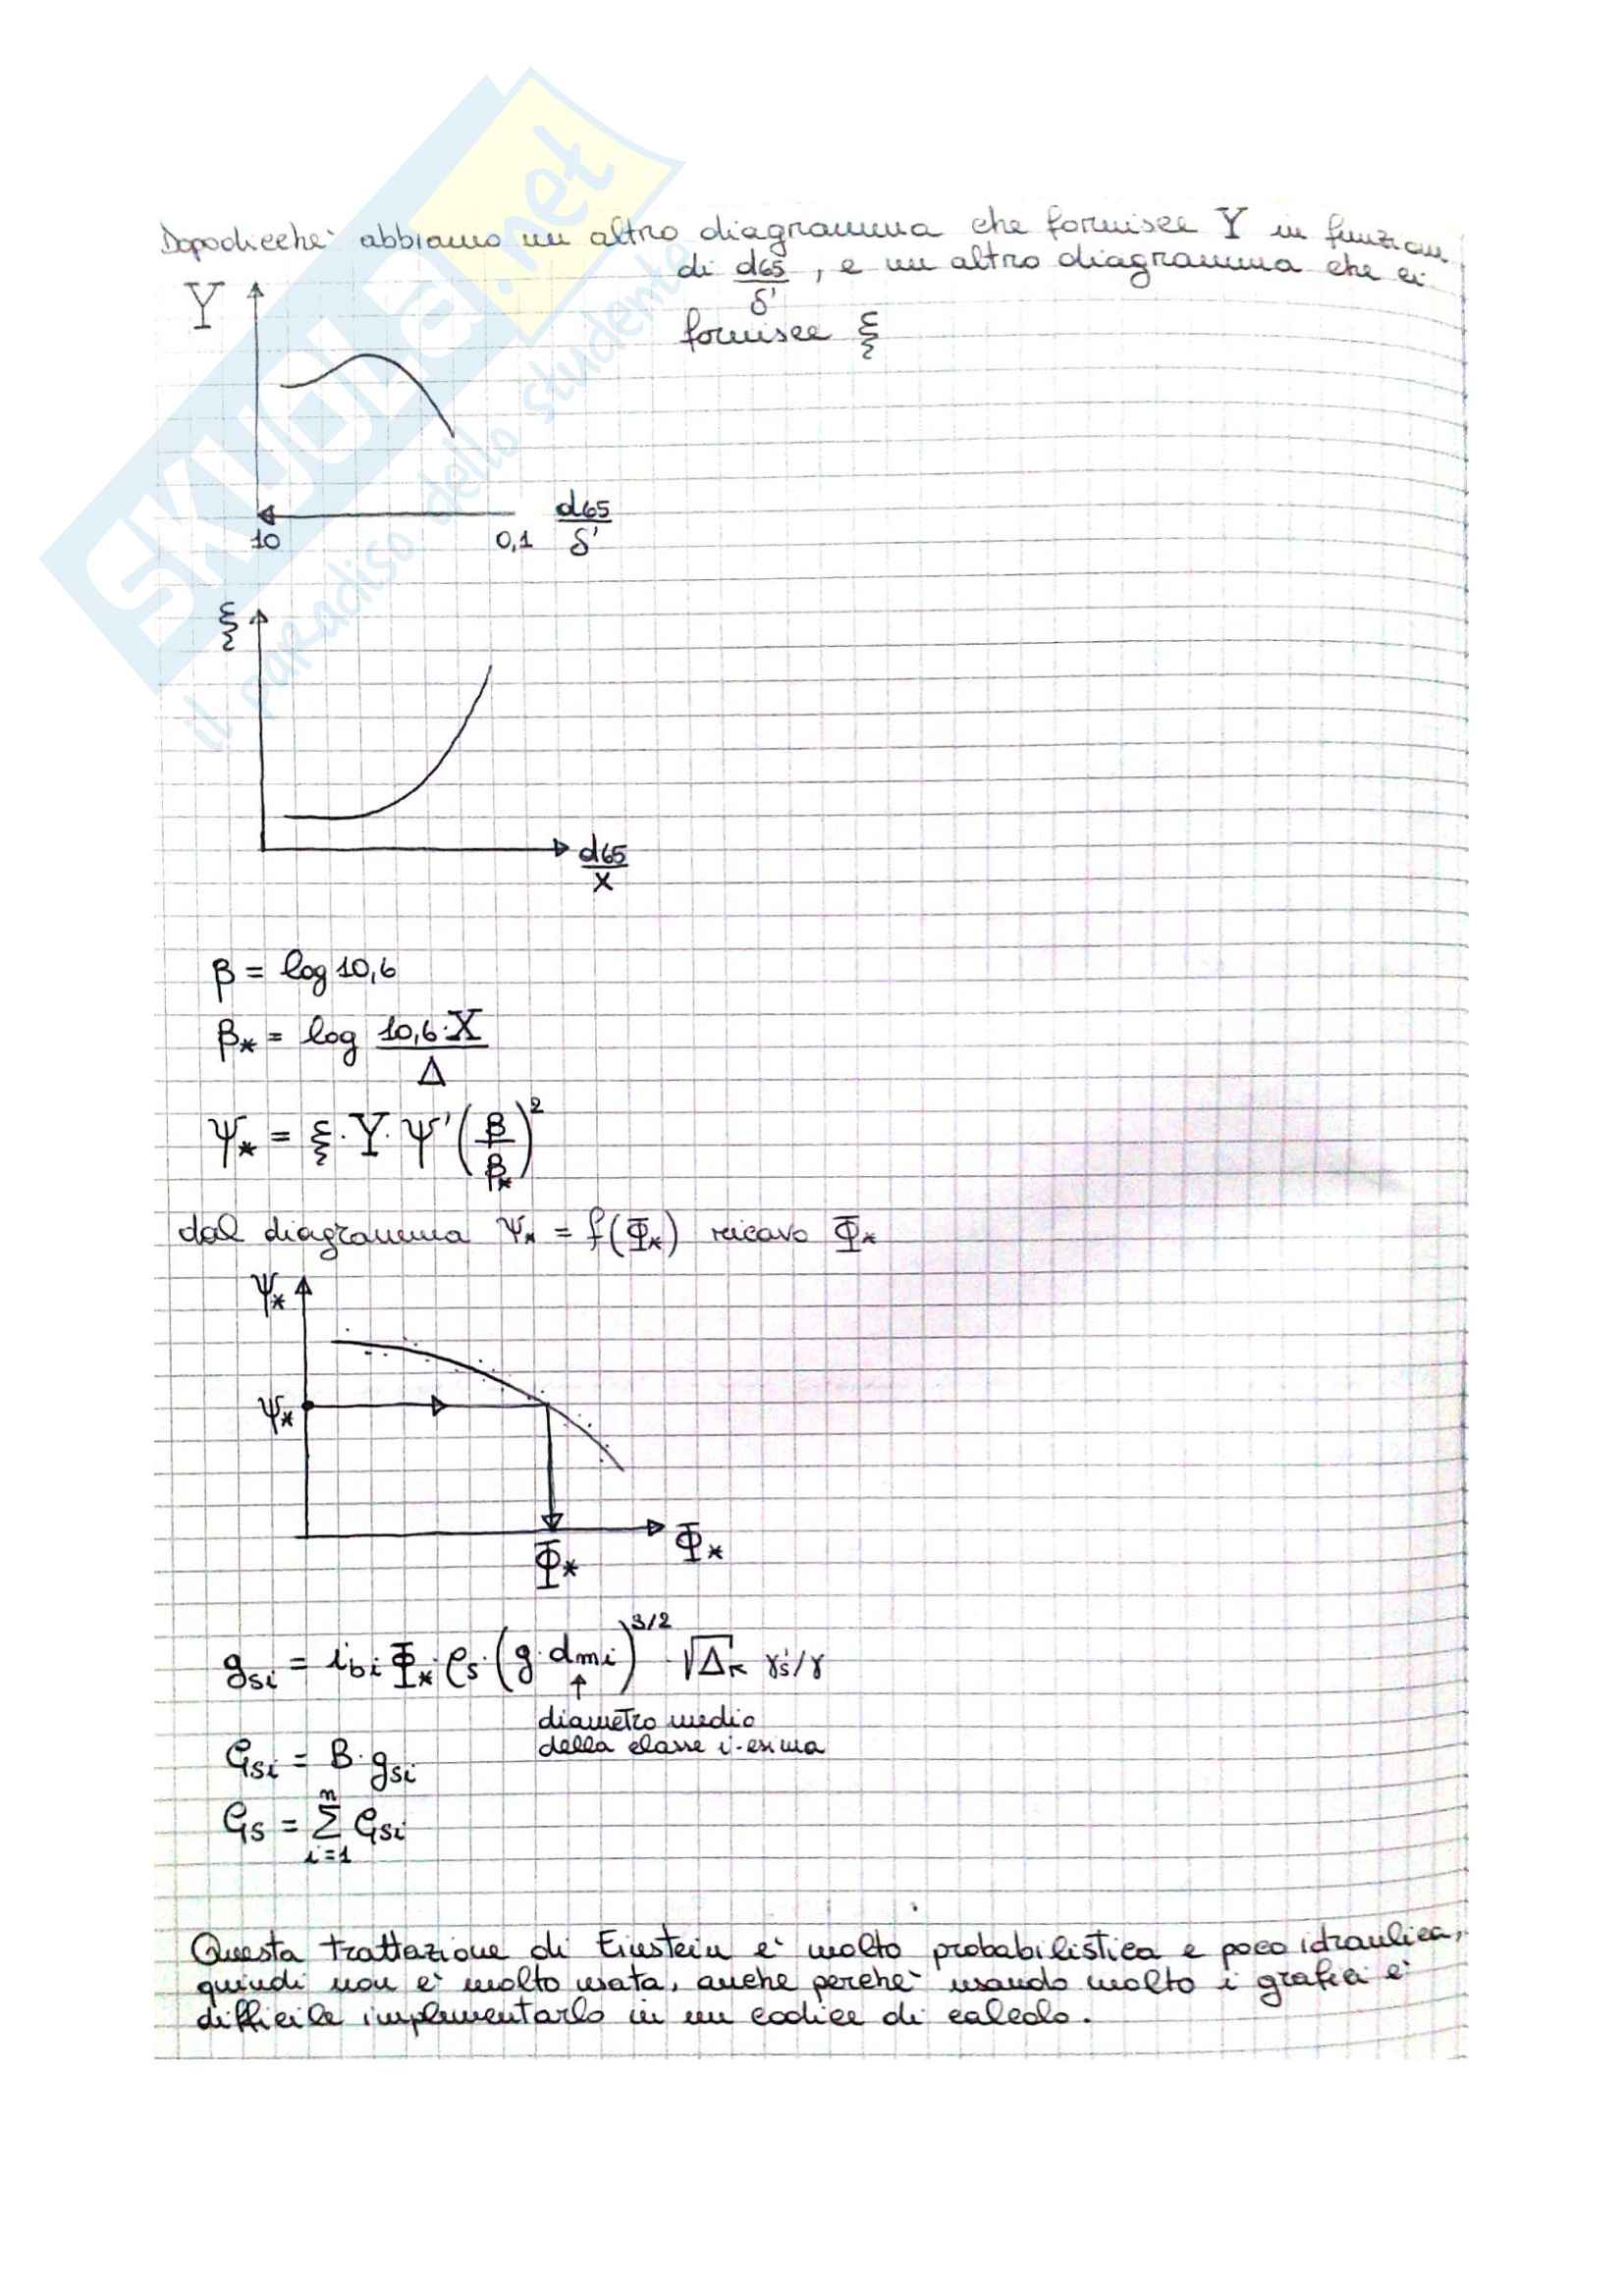 Dopodicchè abbiamo un altro diagramma che fornisce Y in funzion
di d65/δ' , e un altro diagramma che ci
fornisce ξ
Y
10 0,1 d65/δ'
ξ
d65/X
β = log 10,6
β* = log 10,6·X/Δ
ψ* = ξ·Y·ψ'(β/β*)²
dal diagramma ψ* = f(Φ*) ricavo Φ*
ψ*
ψ*
Φ*
Φ*
gsi = ibi Φ*·ρs·(g·dmi)^3/2 √Δ γs'/γ
↑
diametro medio
della classe i-esima
Gsi = B·gsi
Gs = Σ Gsi
n
i=1
Questa trattazione di Einstein è molto probabilistica e poco idraulica,
quindi non è molto usata, anche perchè usando molto i grafici è
difficile implementarlo in un codice di calcolo.
SKUOLA.net
il paradiso dello studente